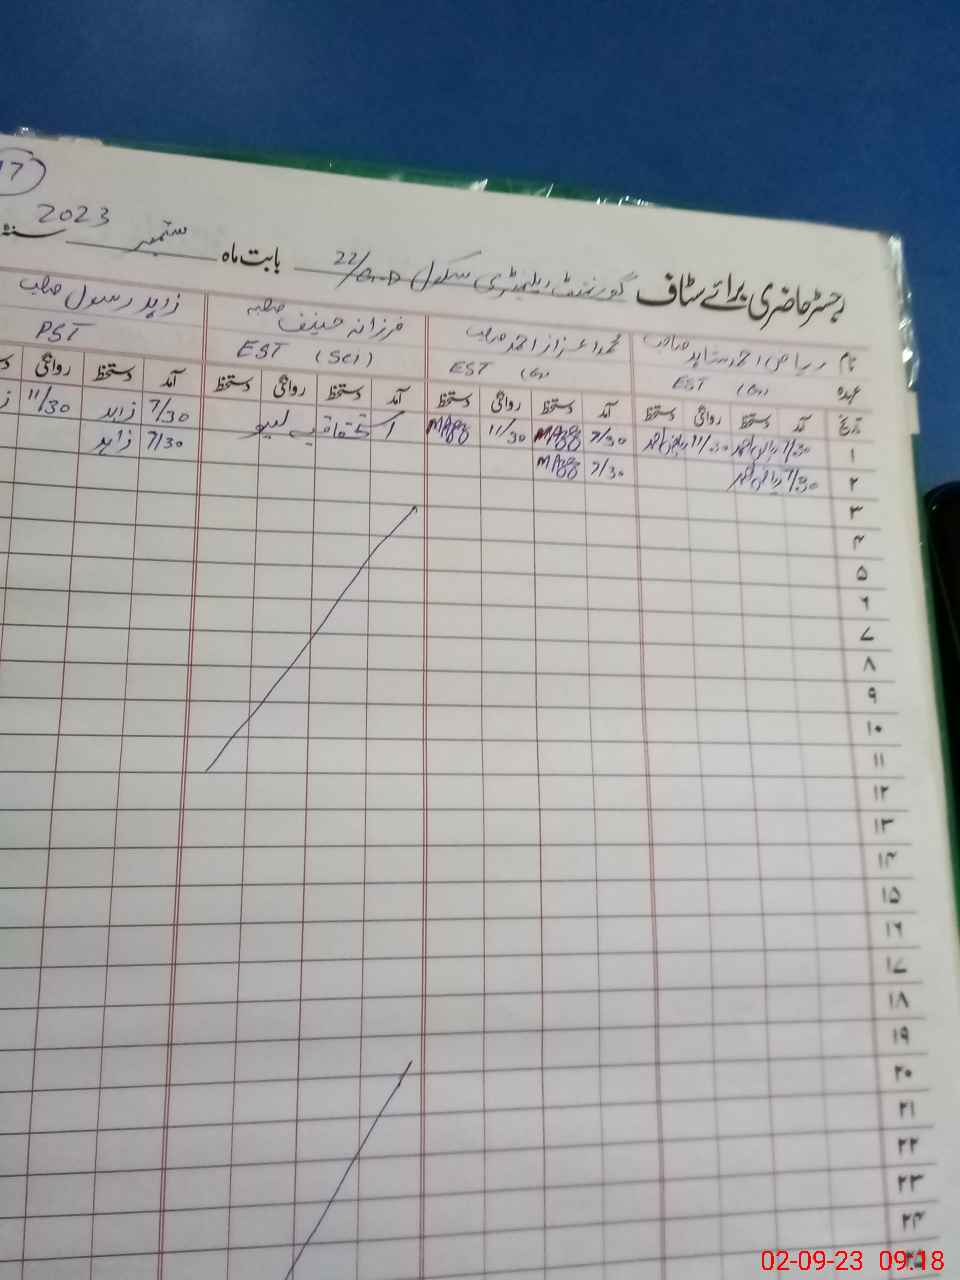 17
رجسٹر حاضری برائے سٹاف گورنمنٹ ایلیمنٹری سکول 22/G.D بابت ماہ ستمبر سنہ 2023
نام ریاض احمد شاہد صاحب محمد اعزاز احمد صاحب فرزانہ حنیف صاحبہ زاہد رسول صاحب
عہدہ EST EST EST (Sci) PST
تاریخ آمد دستخط روانگی دستخط آمد دستخط روانگی دستخط آمد دستخط روانگی دستخط آمد دستخط روانگی
۱ 7/30 ریاض احمد 11/30 ریاض احمد 7/30 11/30 لیو 7/30 زاہد 11/30
۲ 7/30 ریاض احمد 7/30 7/30 زاہد
۳
۴
۵
۶
۷
۸
۹
۱۰
۱۱
۱۲
۱۳
۱۴
۱۵
۱۶
۱۷
۱۸
۱۹
۲۰
۲۱
۲۲
۲۳
۲۴
۲۵
02-09-23 09:18